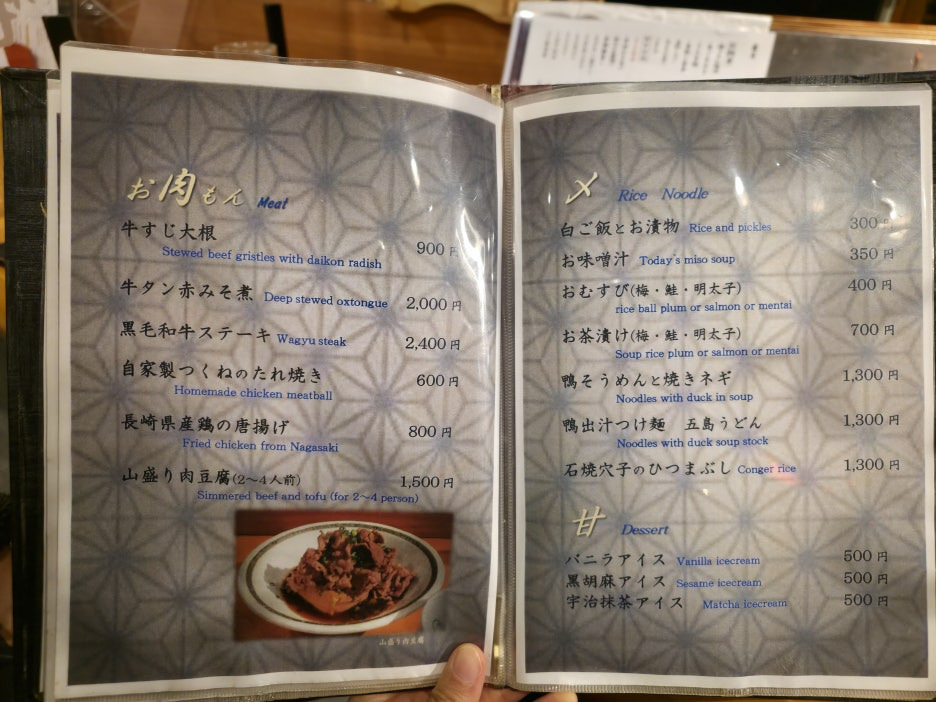 お肉もん Meat
牛すじ大根 900円
Stewed beef gristles with daikon radish
牛タン赤みそ煮 Deep stewed oxtongue 2,000円
黒毛和牛ステーキ Wagyu steak 2,400円
自家製つくねのたれ焼き 600円
Homemade chicken meatball
長崎県産鶏の唐揚げ 800円
Fried chicken from Nagasaki
山盛り肉豆腐(2〜4人前) 1,500円
Simmered beef and tofu (for 2〜4 person)
山盛り肉豆腐
〆 Rice Noodle
白ご飯とお漬物 Rice and pickles 300円
お味噌汁 Today's miso soup 350円
おむすび(梅・鮭・明太子) 400円
rice ball plum or salmon or mentai
お茶漬け(梅・鮭・明太子) 700円
Soup rice plum or salmon or mentai
鴨そうめんと焼きネギ 1,300円
Noodles with duck in soup
鴨出汁つけ麺 五島うどん 1,300円
Noodles with duck soup stock
石焼穴子のひつまぶし Conger rice 1,300円
甘 Dessert
バニラアイス Vanilla icecream 500円
黒胡麻アイス Sesame icecream 500円
宇治抹茶アイス Matcha icecream 500円